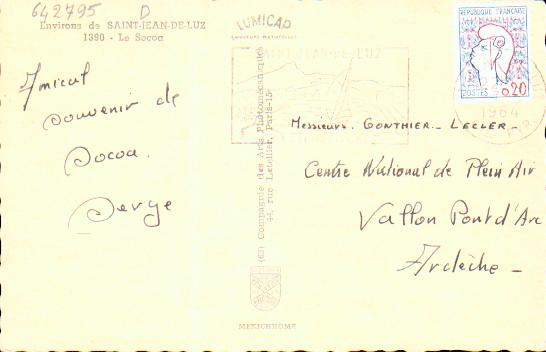 642795 D
Environs de SAINT-JEAN-DE-LUZ
1390 - Le Socoa
LUMICAP
COULEURS NATURELLES
SAINT-JEAN-DE-LUZ
REPUBLIQUE FRANÇAISE
POSTES 0,20
1964
Amical
souvenir de
Socoa.
Serge
(63) Compagnie des Arts Photomécaniques
44, rue Letellier, Paris-15e
MEXICHROME
Messieurs. GONTHIER - LECLER -
Centre National de Plein Air
Vallon Pont d'Arc
Ardèche -